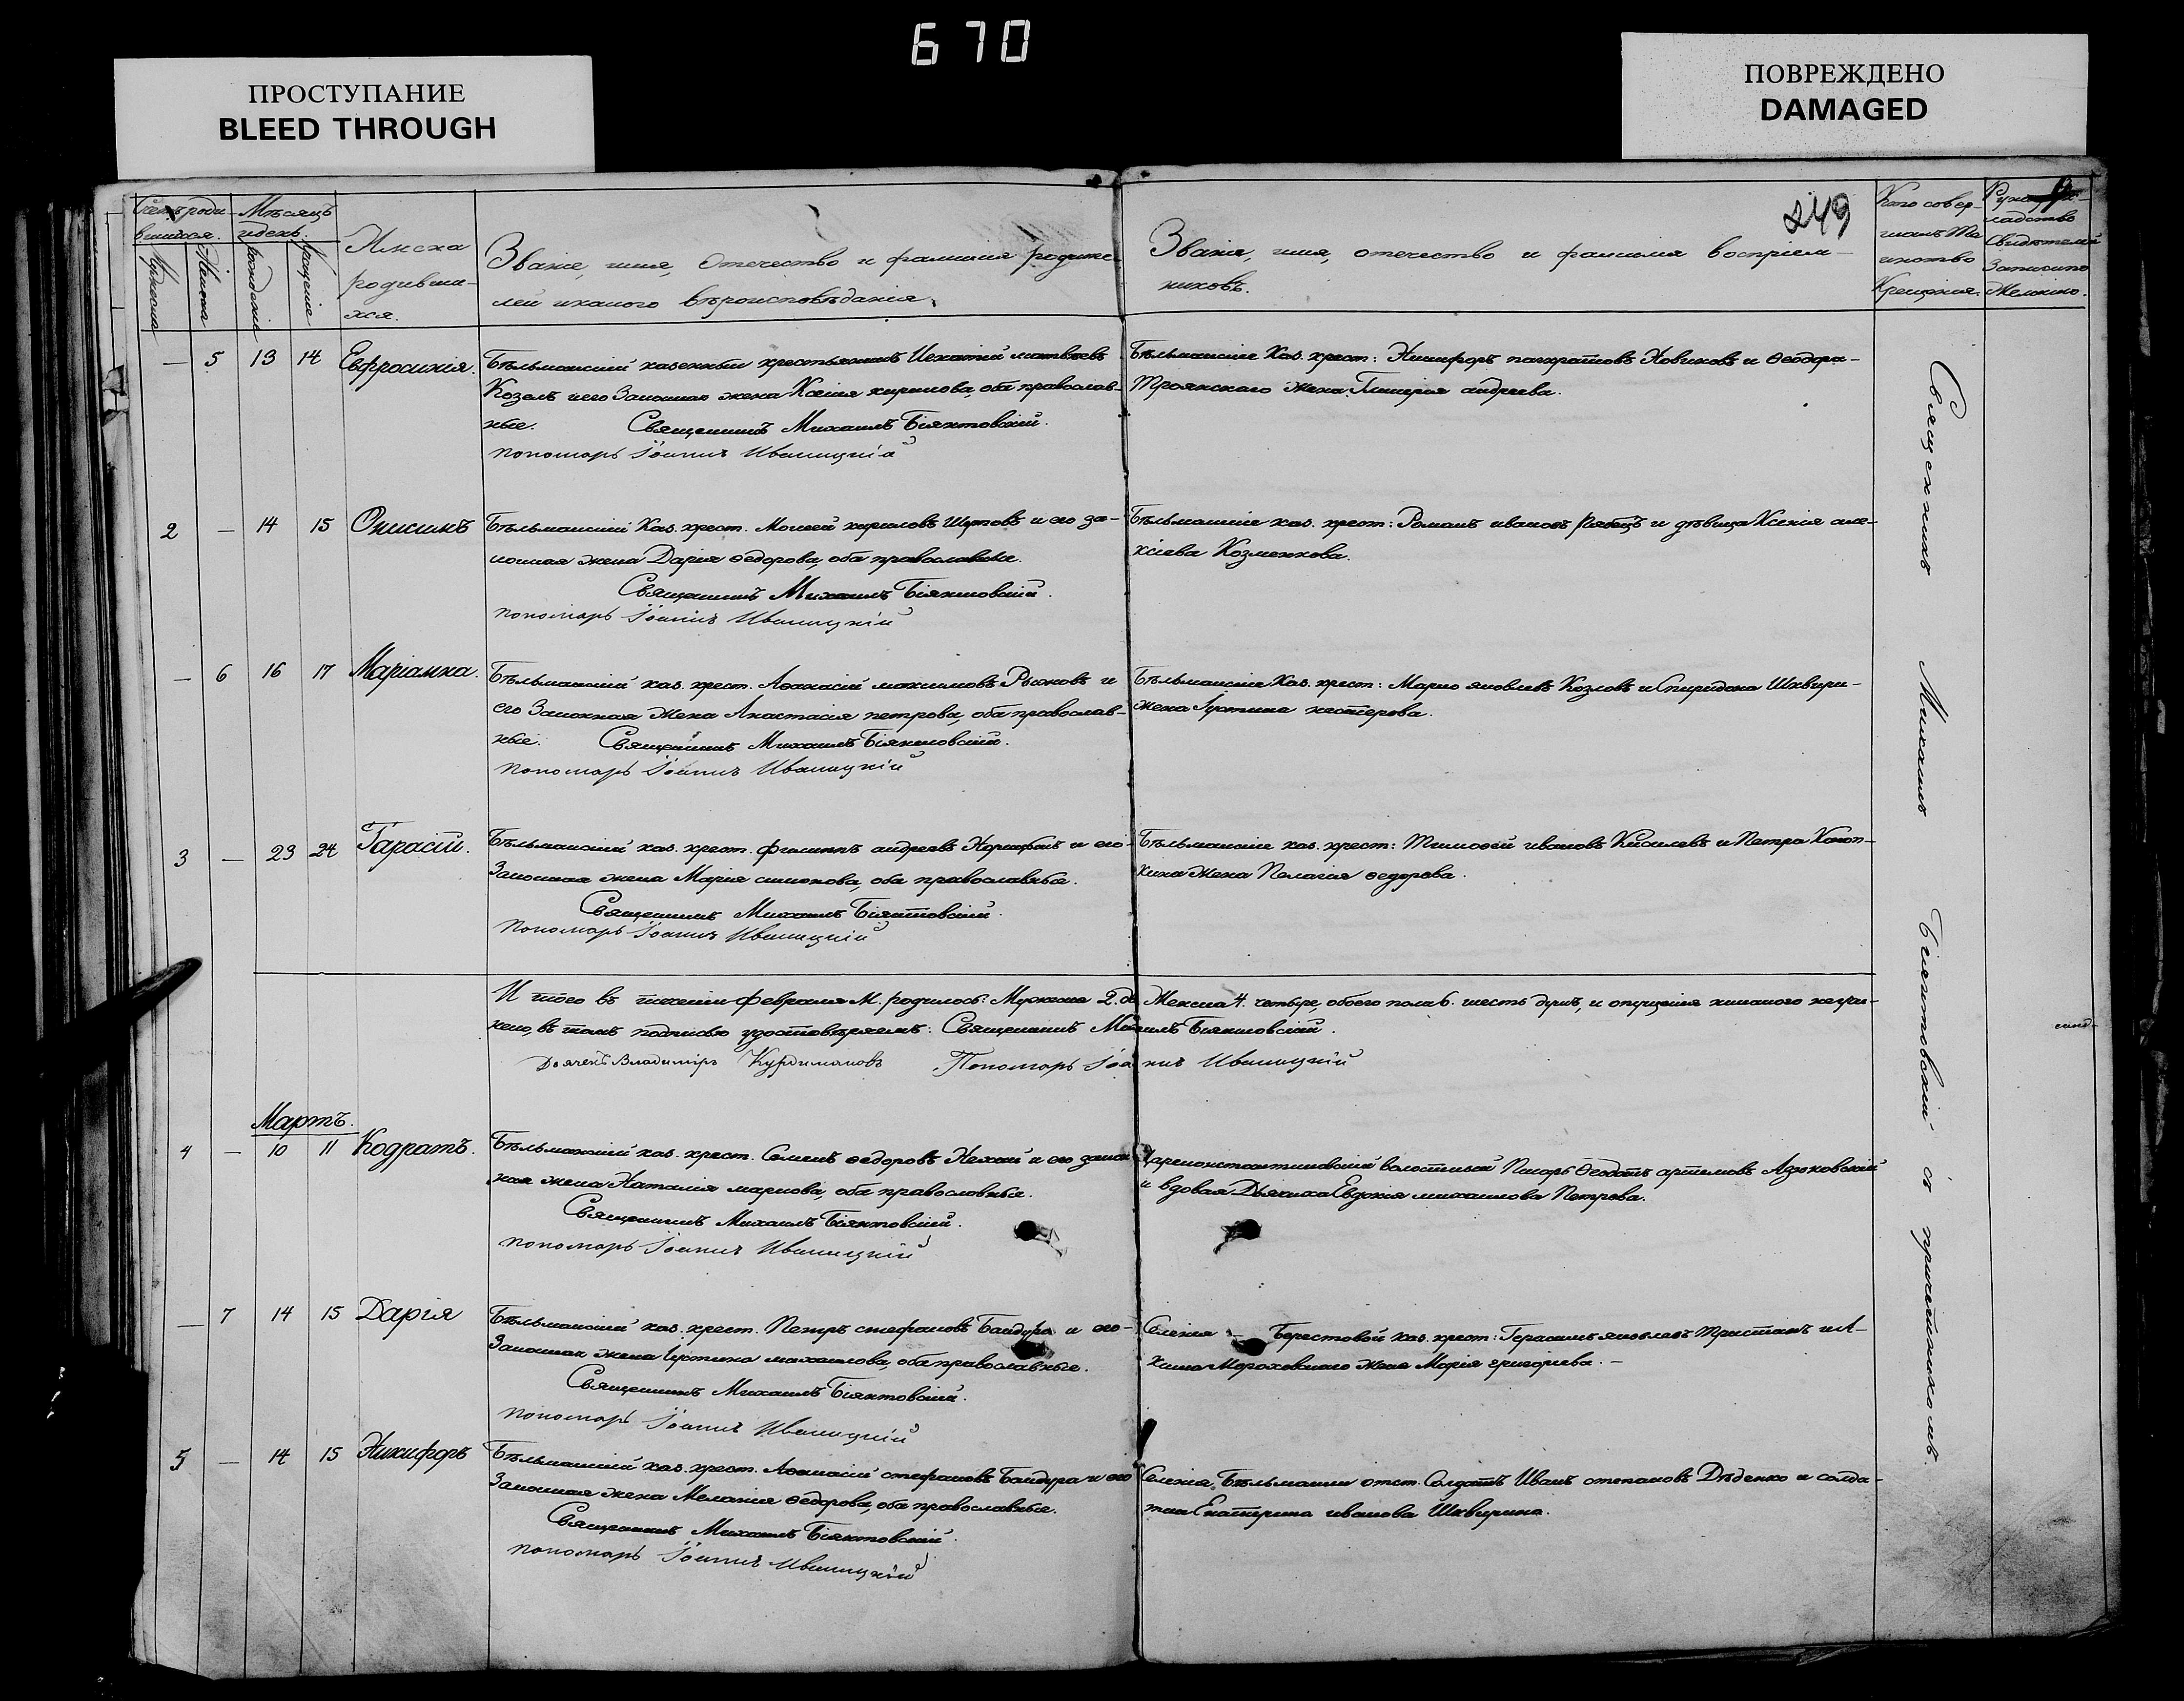 670
ПРОСТУПАНИЕ
BLEED THROUGH
ПОВРЕЖДЕНО
DAMAGED
249
Счетъ роди-
вшихся.
Мѣсяцъ
и день.
Мужеска
Женска
рожденія
крещенія
Имена
родивши-
хся.
Званіе, имя, Отечество и фамилія родите-
лей и какого вѣроисповѣданія.
Званіе, имя, отечество и фамилія воспріем-
никовъ.
Кто совер-
шалъ Та
инство
Крещенія.
Свидѣтелей
Записи по
Желанію.
— 5 13 14 Евфросинія.
Бѣльманскій казенный крестьянинъ Игнатій матвѣевъ
Козелъ и его Законная жена Ксенія кирилова, оба православ-
ные. Священникъ Михаилъ Біянтовскій.
пономарь Іоаннъ Иваницкій
Бѣльманскіе Каз. крест: Никифоръ панкратовъ Новиковъ и Ѳеодора
Троянскаго жена Гликерія андреева.
2 — 14 15 Онисимъ
Бѣльманскій Каз. крест. Моисей кириловъ Шутовъ и его за-
конная жена Дарія ѳедорова, оба православные.
Священникъ Михаилъ Біянтовскій.
пономарь Іоаннъ Иваницкій
Бѣльманскіе каз. крест: Романъ ивановъ Рябецъ и дѣвица Ксенія але-
ксіева Козменкова.
— 6 16 17 Маріамна.
Бѣльманскій каз. крест. Аѳанасій максимовъ Рыжовъ и
его Законная жена Анастасія петрова, оба православ-
ные. Священникъ Михаилъ Біянтовскій.
пономарь Іоаннъ Иваницкій
Бѣльманскіе Каз. крест: Марко яковлевъ Козловъ и Спиридона Шквири-
жена Іустина нестерова.
3 — 23 24 Тарасій.
Бѣльманскій каз. крест. филиппъ андреевъ и его
Законная жена Марія симонова, оба православные.
Священникъ Михаилъ Біянтовскій.
пономарь Іоаннъ Иваницкій
Бѣльманскіе каз. крест: Тимоѳей ивановъ Киселевъ и Петра Коноп-
кина жена Пелагія ѳедорова.
И того въ теченіи февраля М. родилось: Мужеска 2. два Женска 4. четыре, обоего пола 6. шесть душъ, и опущенія никакого неучи-
нено, въ томъ подписью удостовѣряемъ: Священникъ Михаилъ Біянтовскій.
Дьячекъ Владиміръ Курдимановъ Пономарь Іоаннъ Иваницкій
Мартъ.
4 — 10 11 Кодратъ.
Бѣльманскій каз. крест. Семенъ ѳедоровъ Нехай и его закон
ная жена Наталія маркова, оба православные.
Священникъ Михаилъ Біянтовскій.
пономарь Іоаннъ Иваницкій
Цареконстантиновскій волостный Писарь Ѳеодотъ артемовъ
и вдовая Дьячиха Евдокія михаилова Петрова.
— 7 14 15 Дарія
Бѣльманскій каз. крест. Петръ стефановъ Бандура и его
Законная жена Іустина михаилова, оба православные.
Священникъ Михаилъ Біянтовскій.
пономарь Іоаннъ Иваницкій
Селенія — Берестовой каз. крест: Герасимъ яковлевъ Тристанъ и А-
кима Мороховскаго жена Марія григоріева. —
5 — 14 15 Никифоръ
Бѣльманскій каз. крест. Аѳанасій стефановъ Бандура и его
Законная жена Меланія ѳедорова, оба православные.
Священникъ Михаилъ Біянтовскій.
пономарь Іоаннъ Иваницкій
Селенія Бѣльманки отст. Солдатъ Иванъ степановъ Дѣденко и солда-
тка Екатерина иванова Шквирина.
Священникъ Михаилъ Біянтовскій съ причетникомъ.